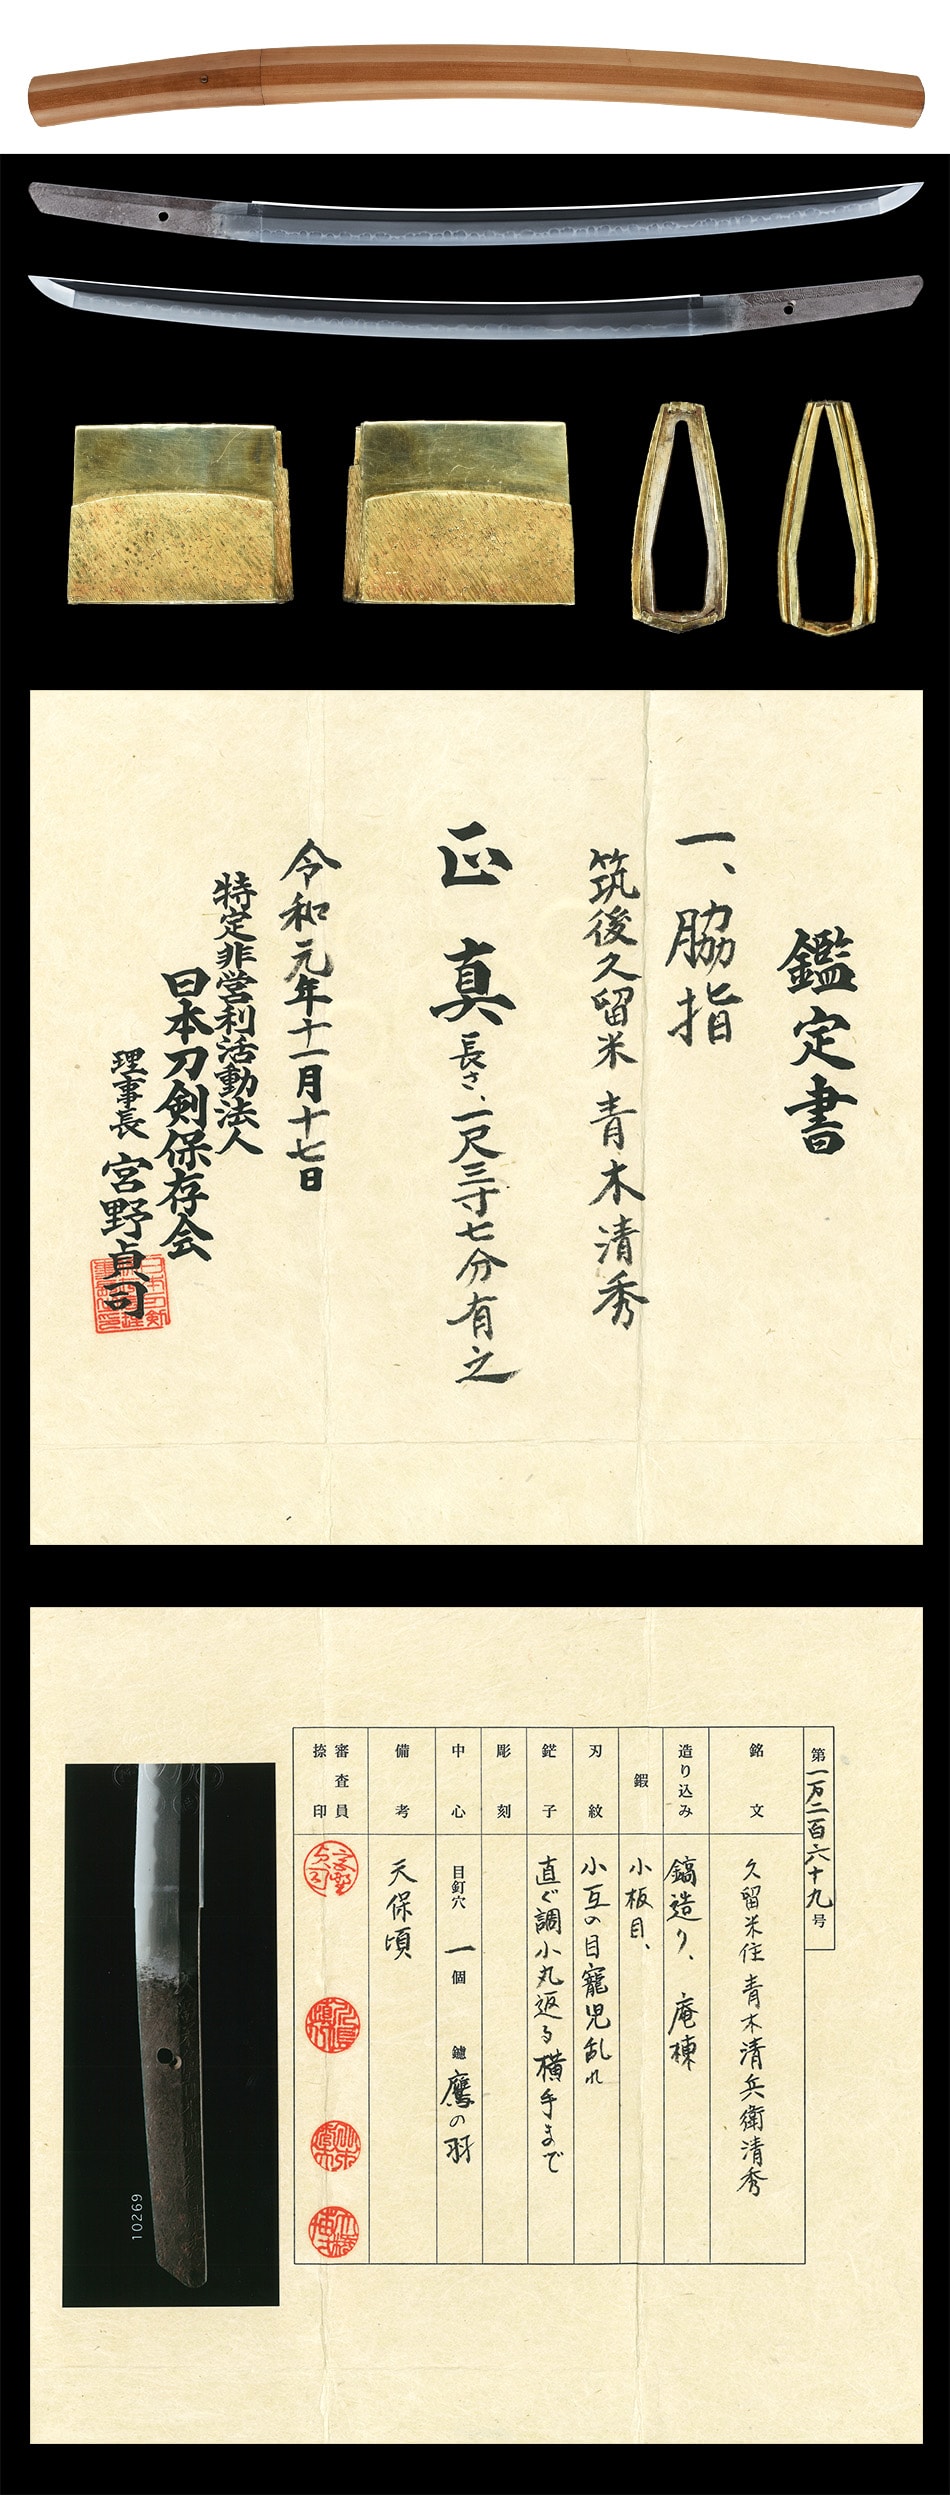 鑑定書
一、脇指
筑後久留米 青木清秀
正真 長さ、一尺三寸七分有之
令和元年十一月十七日
特定非営利活動法人
日本刀剣保存会
理事長 宮野貞司
第一万二百六十九号
銘文 久留米住 青木清兵衛清秀
造り込み 鎬造り、庵棟
鍛 小板目、
刃紋 小互の目寵児乱れ
鋩子 直ぐ調小丸返る横手まで
彫刻
中心 目釘穴 一個 鑢 鷹の羽
備考 天保頃
審査員
捺印
10269